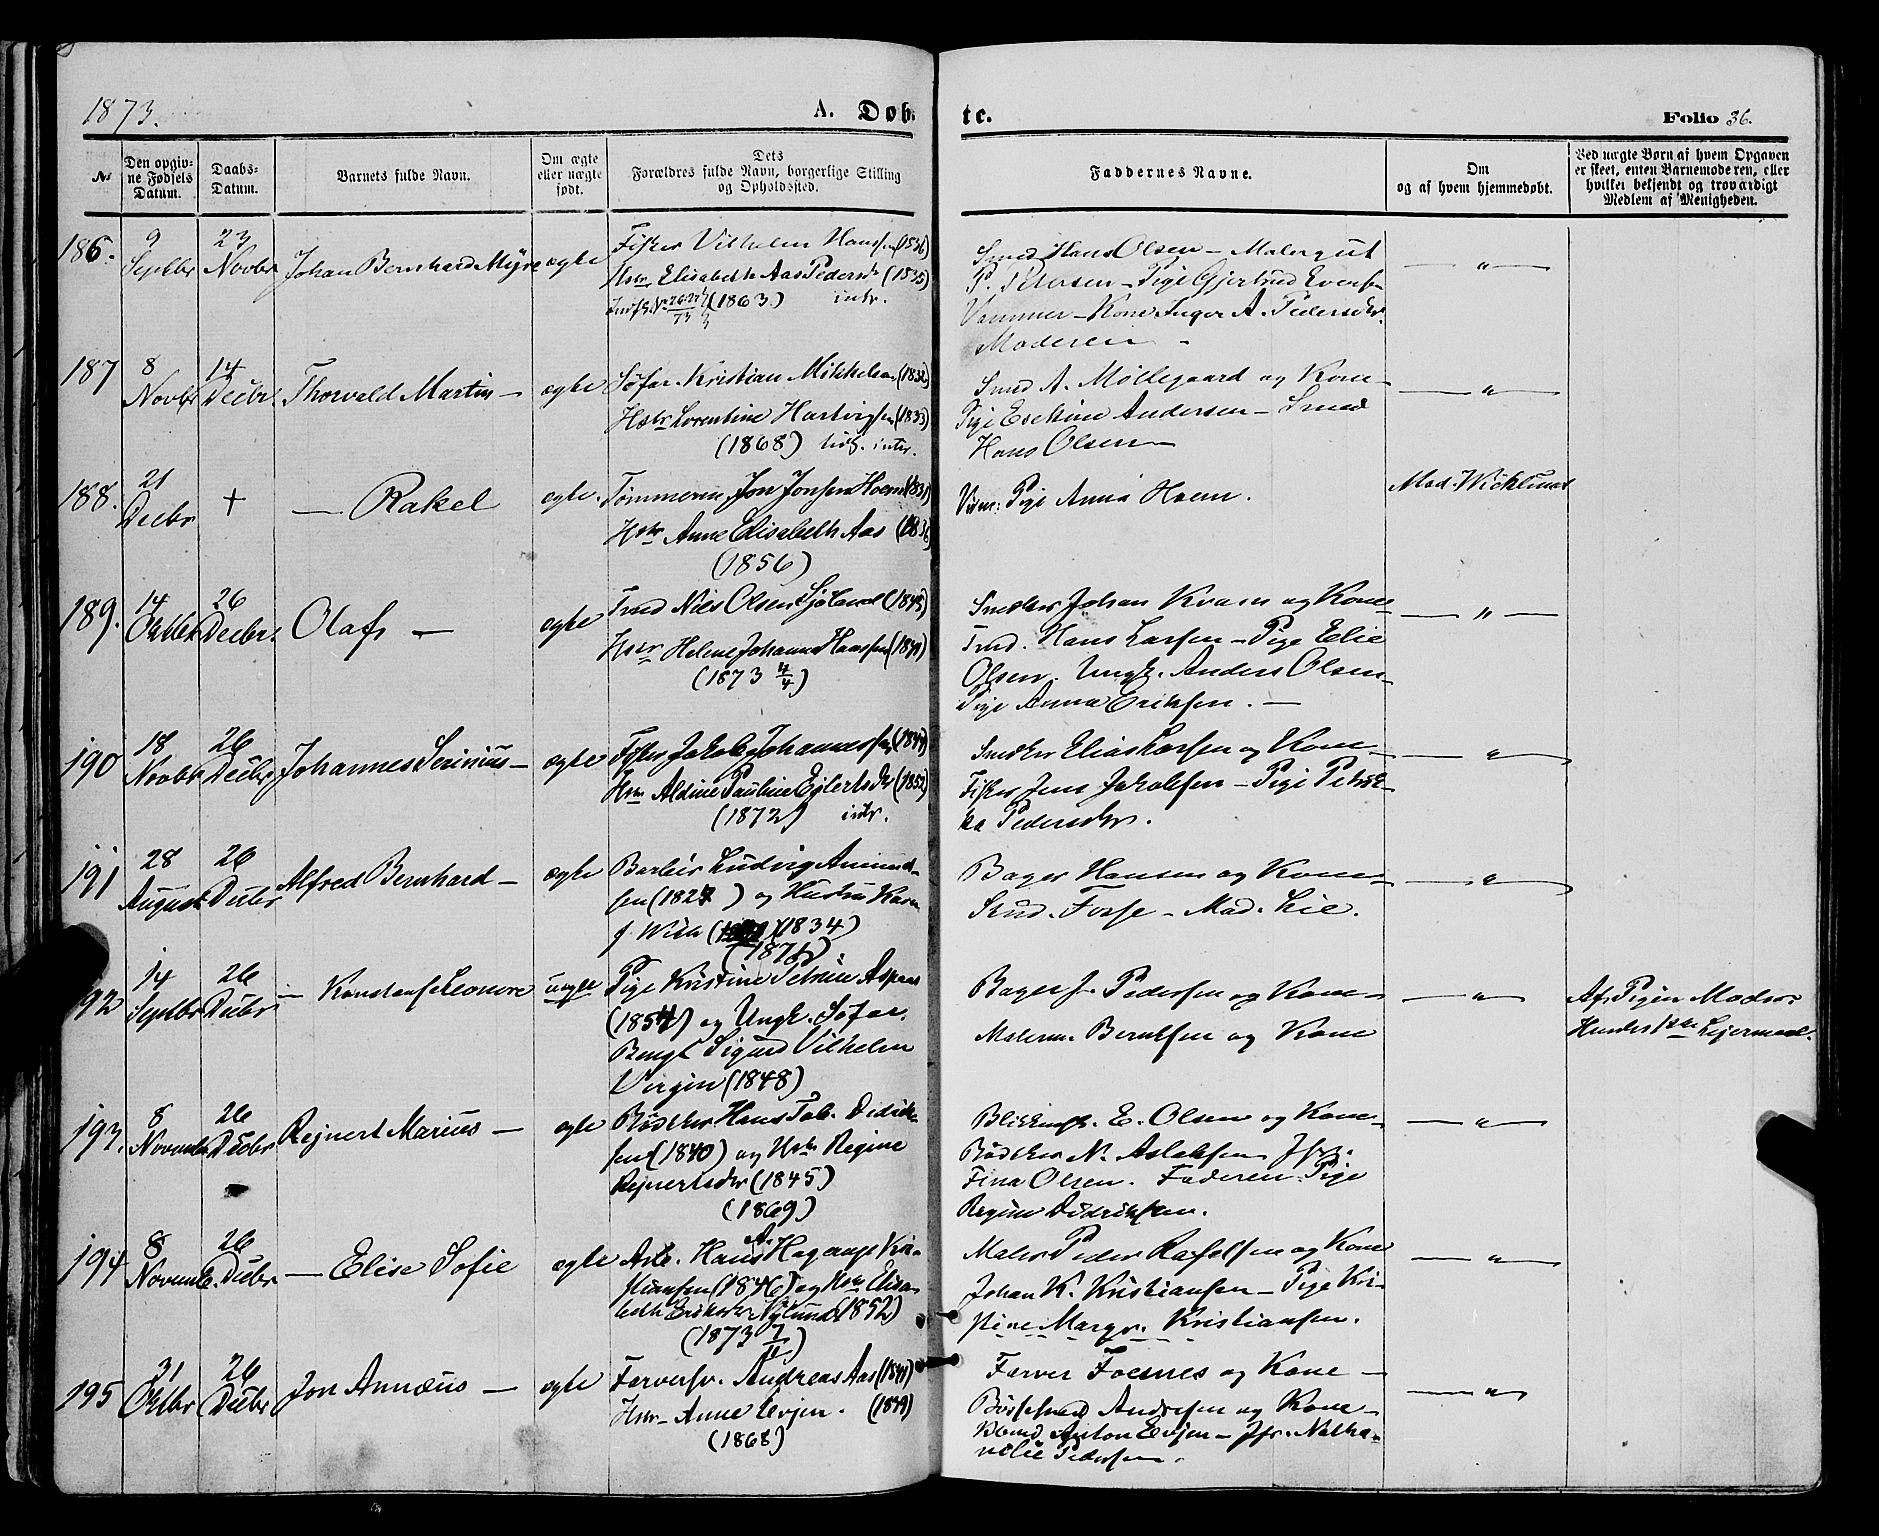 1873.
A. Døb-
te.
Folio 36.
№
Den opgiv-
ne Fødsels
Datum.
Daabs-
Datum.
Barnets fulde Navn.
Om ægte
eller uægte
født.
Dets
Forældres fulde Navn, borgerlige Stilling
og Opholdssted.
Faddernes Navne.
Om
og af hvem hjemmedøbt.
Ved uægte Børn af hvem Opgaven
er skeet, enten Barnemoderen, eller
hvilket bekjendt og troværdigt
Medlem af Menigheden.
186.
9
Septbr
23
Novbr
Johan Bernhard Myre
ægte
Fisker Vilhelm Hansen (1836)
Hstr Elisabeth Aas Pedersdr (1835)
(1863) intr.
Smed Hans Olsen – Malergut
P. Petersen – Pige Gjertrud Evensen
Kone Inger A. Pedersdr.
Moderen –
— " —
187
8
Novbr
14
Decbr.
Thorvald Martin —
ægte
Søfar. Kristian Mikkelsen (1832)
Hstr Lorentine Hartvigsen (1833)
(1868) intr.
Smed A. Møllegaard og Kone –
Pige Andersen – Smed
Hans Olsen —
— " —
188.
21
Decbr
+
— Rakel
ægte.
Tømmerm. Jon Jonsen Hoem (1831)
Hstr Anne Elisabeth Aas (1836)
(1856)
Vidne: Pige Anna Hoem.
Mad. Wicklund
189.
14
Oktbr
26
Decbr.
Olaf —
ægte
Nils Olsen Sjøland (1845)
Hstr Helene Johanna Hansen (1849)
(1873 4/4)
Snedker Johan Kvam og Kone –
Hans Larsen – Pige Elie
Olsen. Ungk. Anders Olsen –
Pige Anna Eriksen. —
— " —
190
18
Novbr
26
Decbr
Johannes Serinius —
ægte
Fisker Jakob Johannessen (1844)
Hstr Aldine Pauline Eglertsdr (1852)
(1872) intr.
Snedker Elias Larsen og Kone —
Fisker Jens Jakobsen – Pige Petrik-
ka Pedersdr.
— " —
191
28
August
26
Decbr
Alfred Bernhard —
ægte
Barbér Ludvig Amund-
sen (1827) og Hustru Karen
f. Wick (1834)
(1871)
Bager Hansen og Kone —
Stud. Fosse – Mad. Lie.
— " —
192
14
Septbr
26
Decbr
— Konstanse Leonore
uægte
Pige Kristine Petrine Aspaas
(1854) og Ungk. Søfar.
Bengt Sigurd Vilhelm
Virgin (1848)
Bager J. Pedersen og Kone —
Malerm. Berntsen og Kone
— " —
Af Pigen Moder
Hendes 1ste Lejermaal.
193.
8
Novembr
26
Decbr
Rejnert Marius —
ægte
Bødker Hans Tob. Didrik-
sen (1840) og Hstr Regine
Rejnertsdr (1845)
(1869)
E. Olsen og Kone –
Bødker N. Aslaksen Jfr.
Fina Olsen. Faderen. Pige
Regine Didriksen.
— " —
194
8
Novemb.
26
Decbr
— Elise Sofie
ægte
Arb. Hans A. Hagerup Kri-
stiansen (1846) og Hstr Elisa-
beth Nylund (1852)
(1873)
Maler Peder Rafelsen og Kone
Johan K. Kristiansen – Pige Kri-
stine Margr. Kristiansen.
— " —
195
31
Oktbr
26
Decbr
Jon Annæus —
ægte
Farversv. Andreas Aas (1841)
Hstr – Anne Evjen. (1849)
(1868)
Farver Foesnes og Kone —
Bøssesmed Andresen og Kone —
Anton Evjen – Jfr. Natha-
nelie Pedersen.
— " —